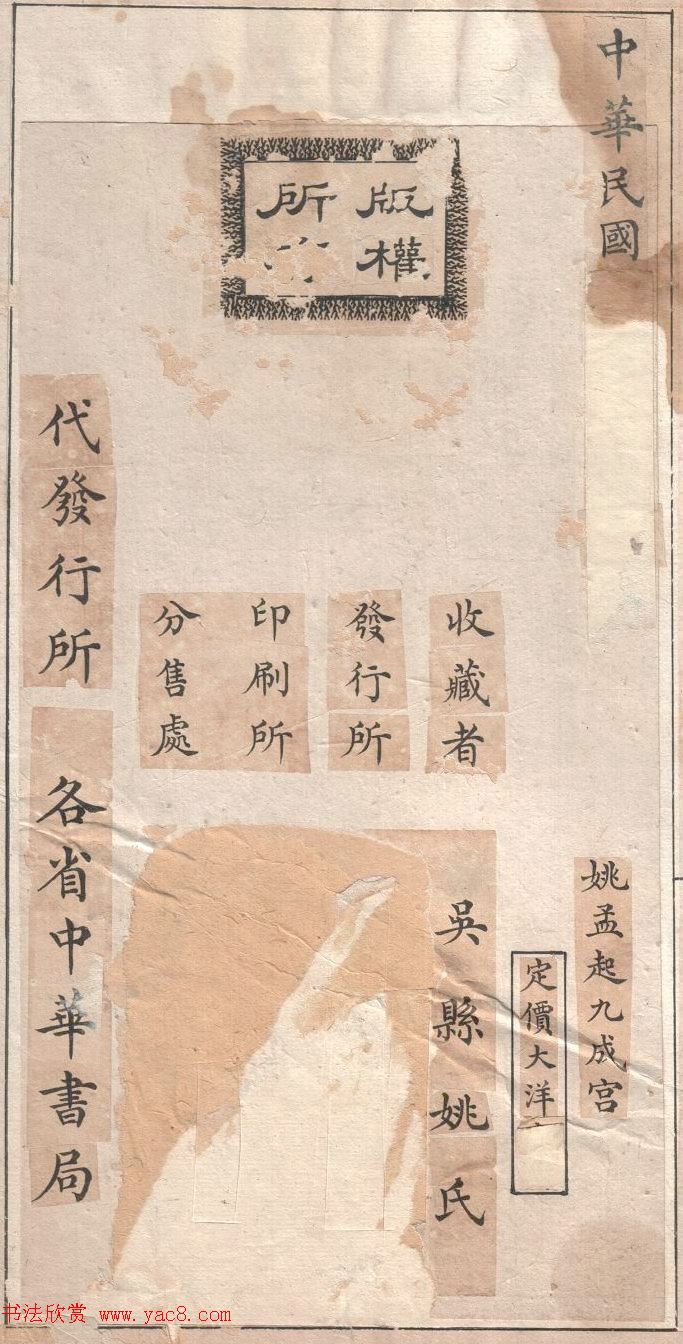 中華民國
版權
所
姚孟起九成宮
定價大洋
收藏者
吳縣姚氏
發行所
印刷所
分售處
代發行所
各省中華書局
书法欣赏 www.yac8.com